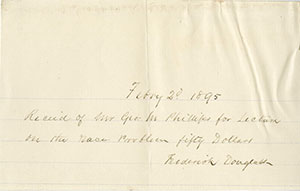 Febry 2d 1895
Receid of Mr Geo. M. Phillips for Lecture
on the Race Problem fifty Dollars
Frederick Douglass